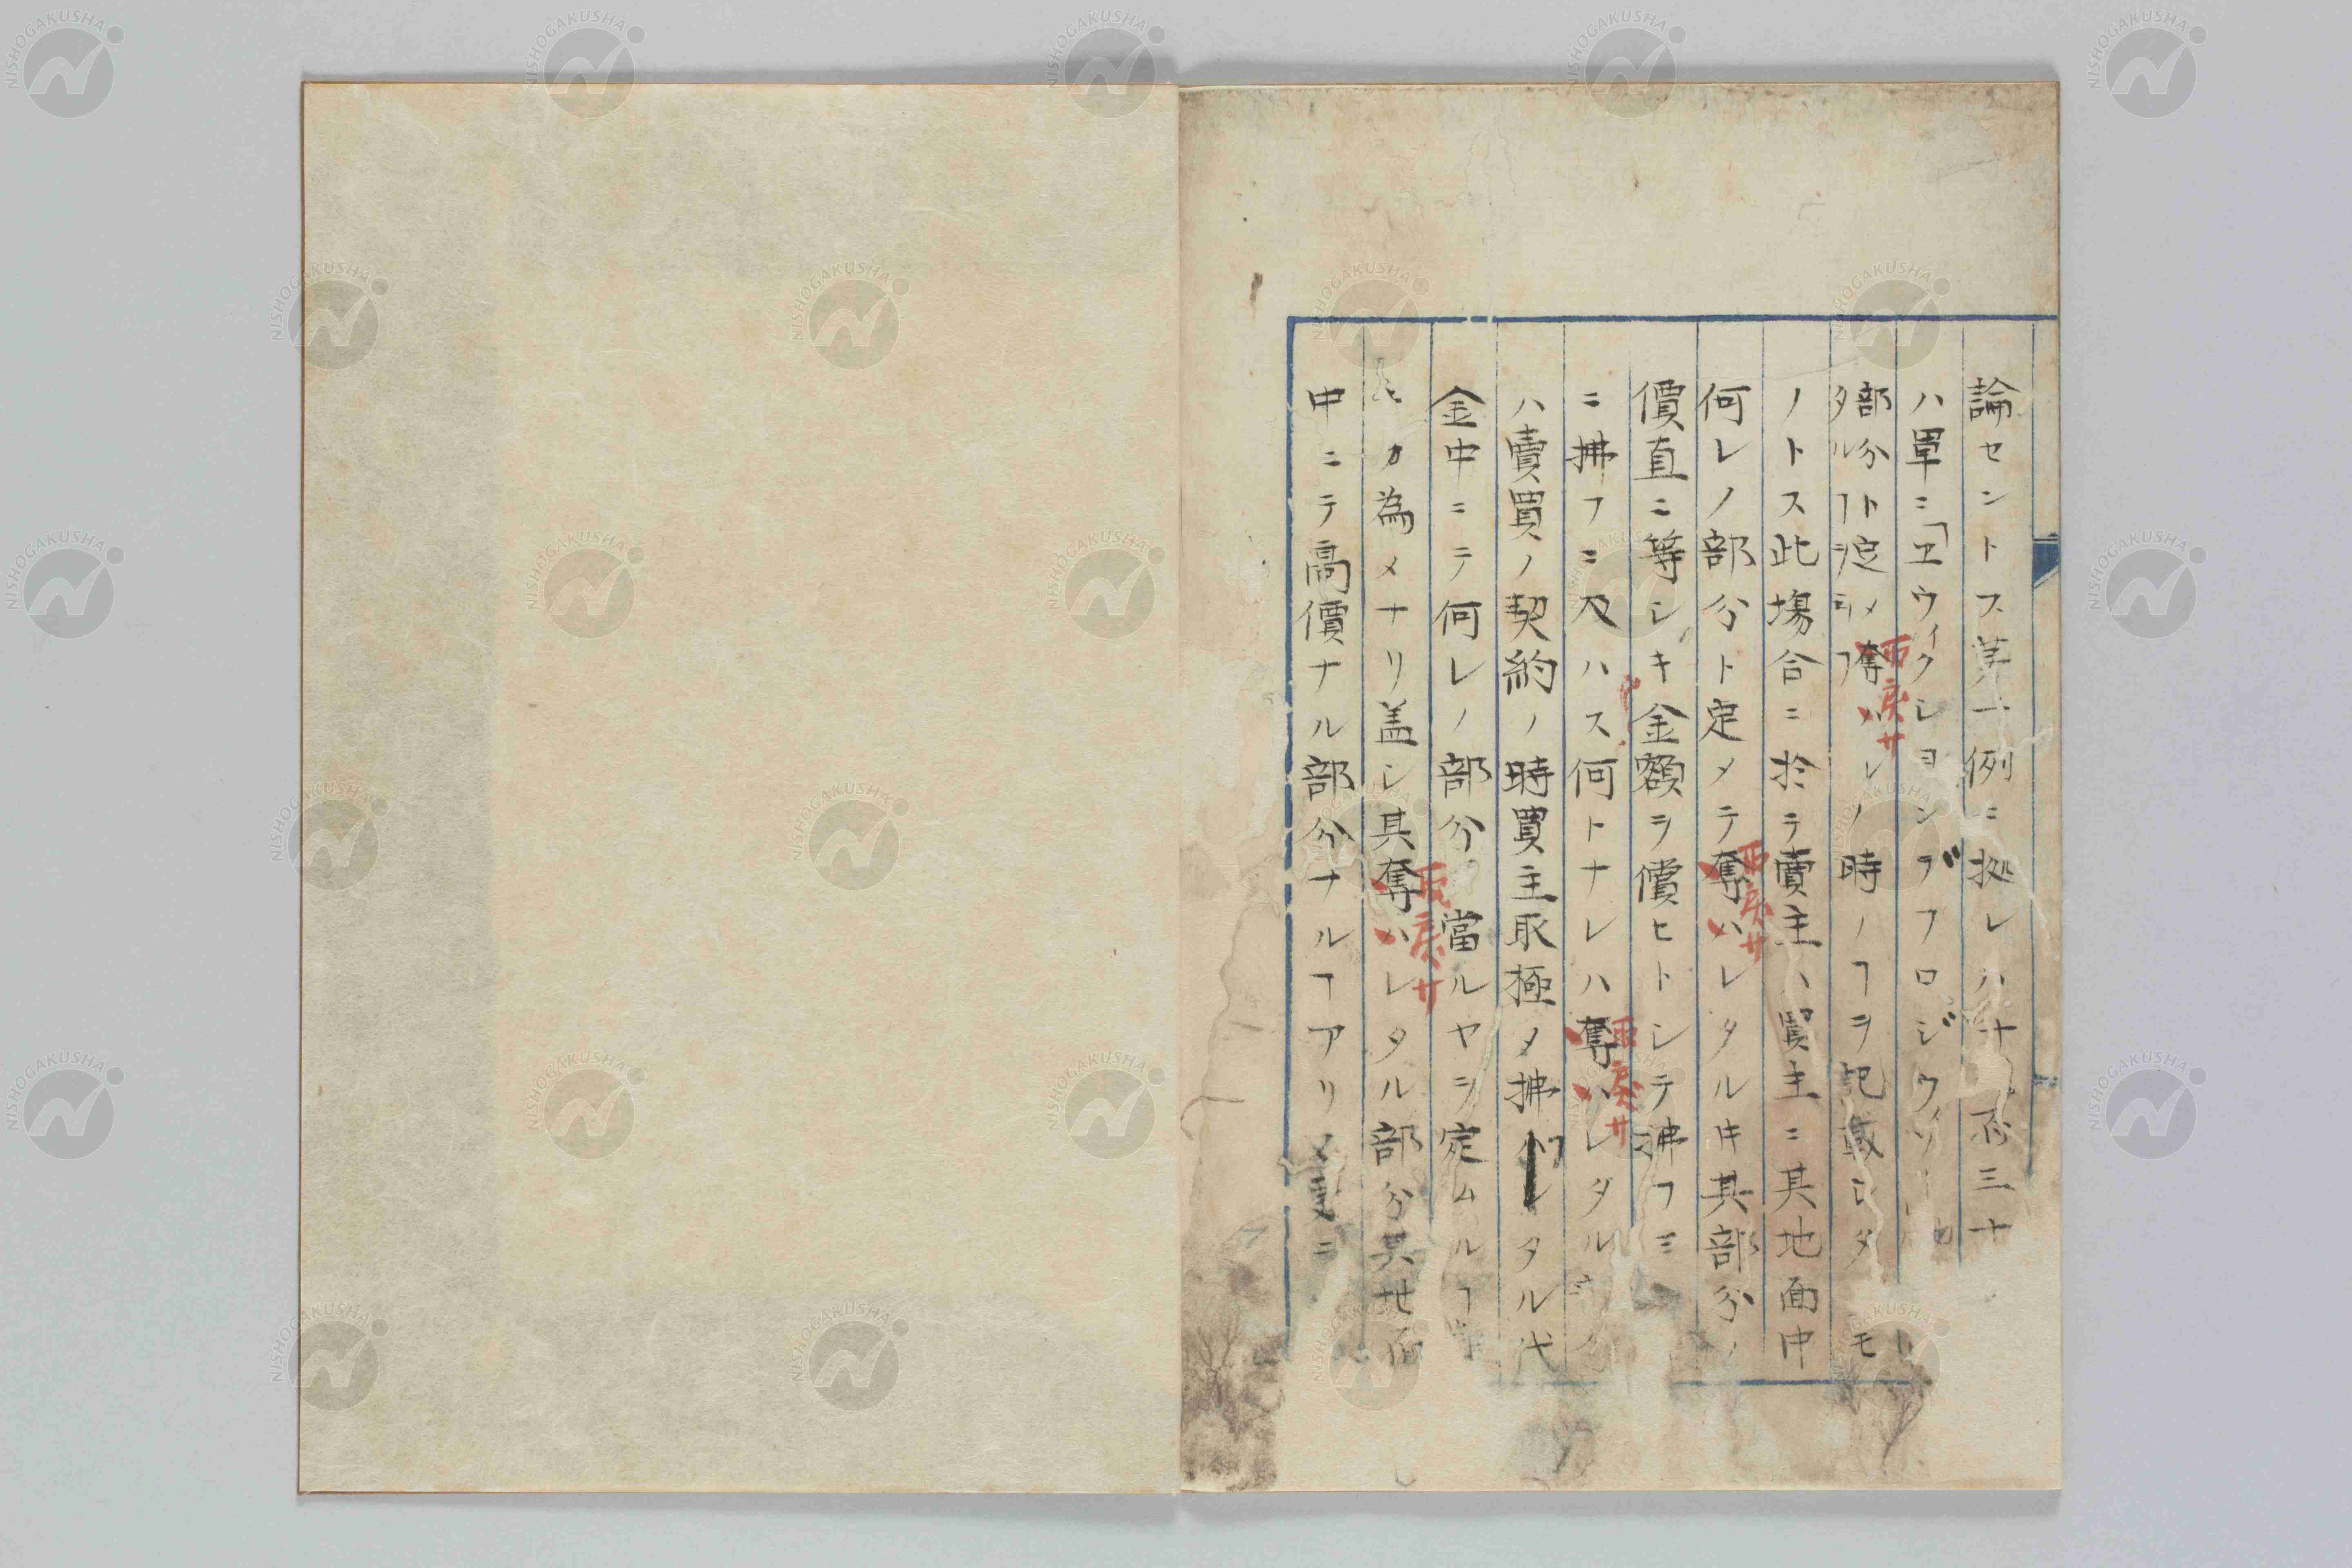 論セントス第一例ニ拠レハ十 否三十
ハ單ニ「エウィクションデフロジウィソー
部分ト定メ奪ハレノ時ノヿヲ記載シタ モ
タルヿヲ ヿ
ノトス此場合ニ於テ賣主ハ買主ニ其地面中
何レノ部分ト定メテ奪ハレタル𪜈其部分ノ
價直ニ等シキ金額ヲ償ヒトシテ沸フミ
ニ拂フニ及ハス何トナレハ奪ハレタル
ハ賣買ノ契約ノ時買主取極メ拂 タル代
金中ニテ何レノ部分 當ルヤヲ定ムルヿ
カ為メナリ盖シ其奪ハレタル部分其地面
中ニテ高價ナル部分ナルヿアリ又 ニ
取戻サ
取戻サ
取戻サ
取戻サ
NISHOGAKUSHA